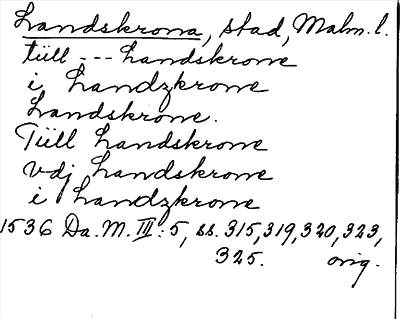 Landskrona, stad, Malm. l.
tiill --- Landskrone
i Landzkrone
Landskrone.
Tiill Landskrone
vdj Landskrone
i Landzkrone
1536 Da. M. III: 5, ss. 315, 319, 320, 323,
325. orig.